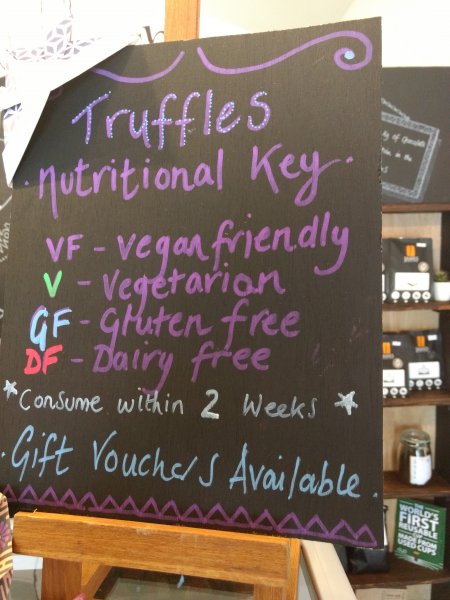 Truffles
Nutritional Key
VF - Vegan friendly
V - Vegetarian
GF - Gluten free
DF - Dairy free
Consume within 2 Weeks
Gift Vouchers Available
WORLD'S
FIRST
REUSABLE
MADE FROM
USED CUPS